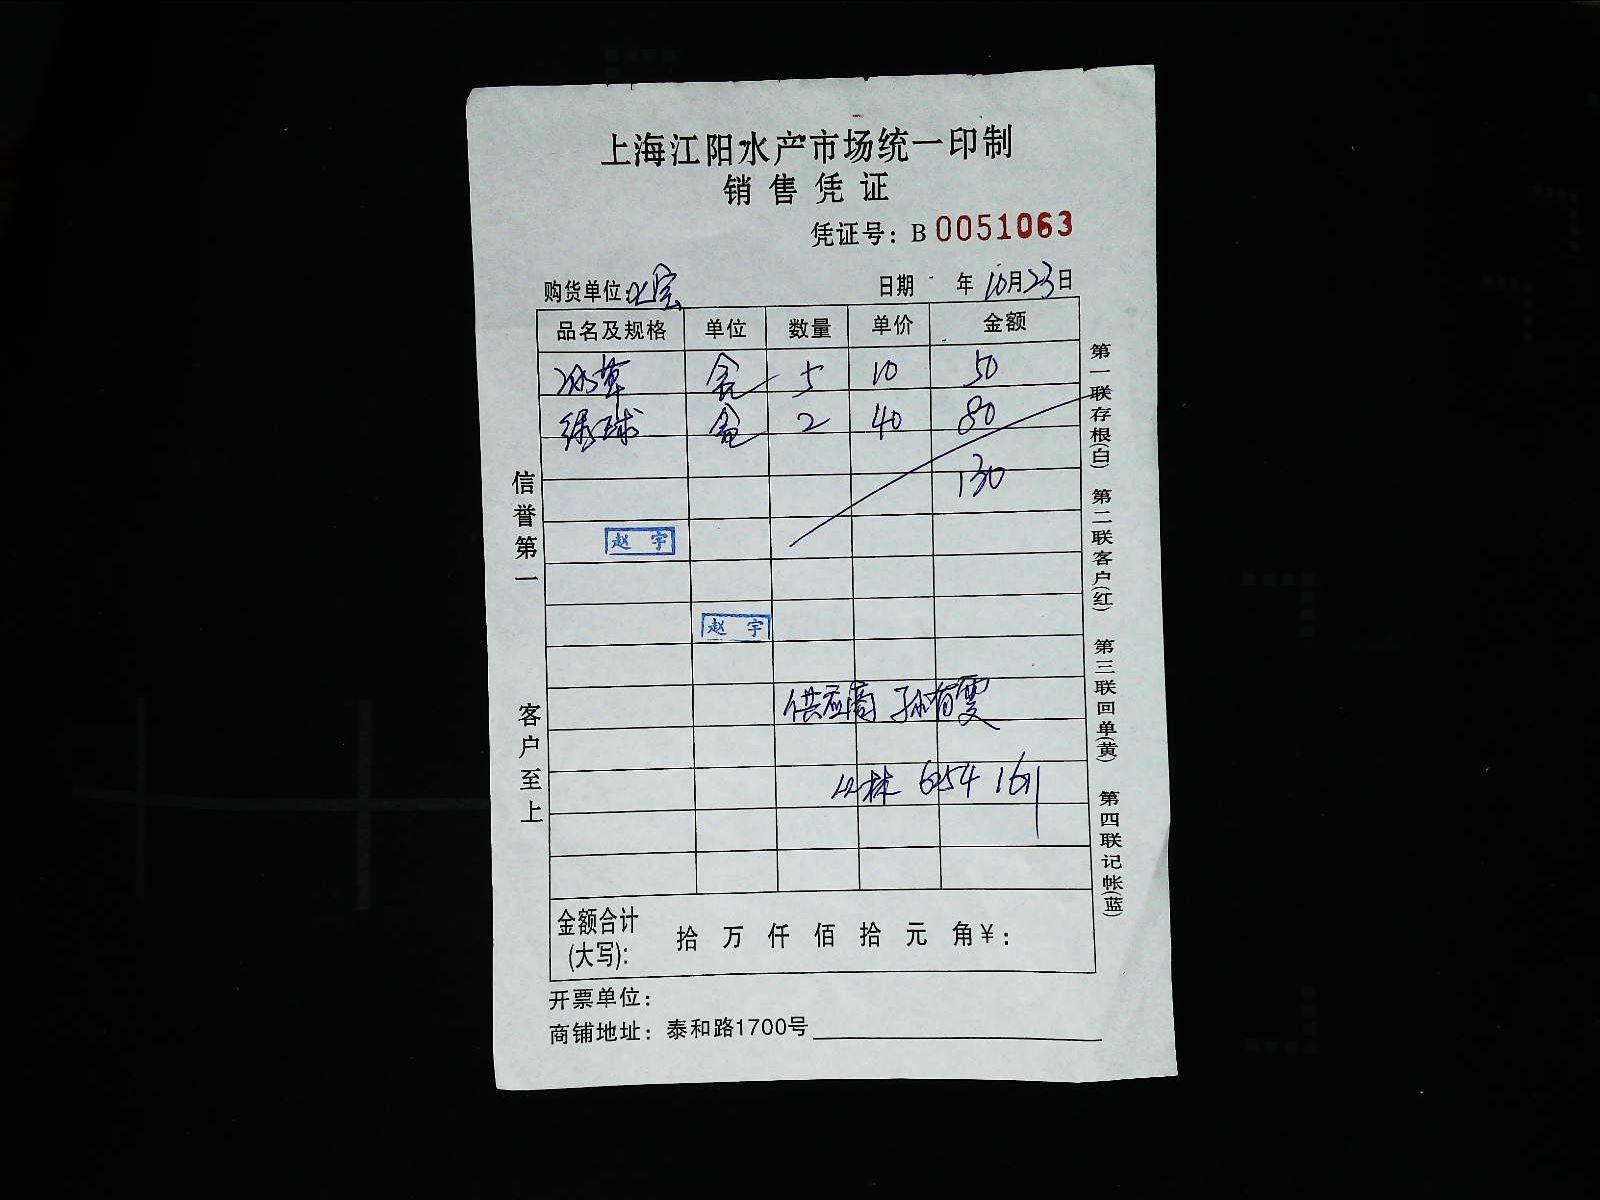 上海江阳水产市场统一印制
销售凭证
凭证号：B 0051063
购货单位：宝 日期 年 10月23日
品名及规格 单位 数量 单价 金额
冰草 盒 5 10 50
绿球 盒 2 40 80
130
赵宇
赵宇
供应商 孙有雯
林 654 1611
金额合计
(大写)： 拾 万 仟 佰 拾 元 角 ¥：
开票单位：
商铺地址：泰和路1700号
信誉第一 客户至上
第一联存根(白) 第二联客户(红) 第三联回单(黄) 第四联记帐(蓝)